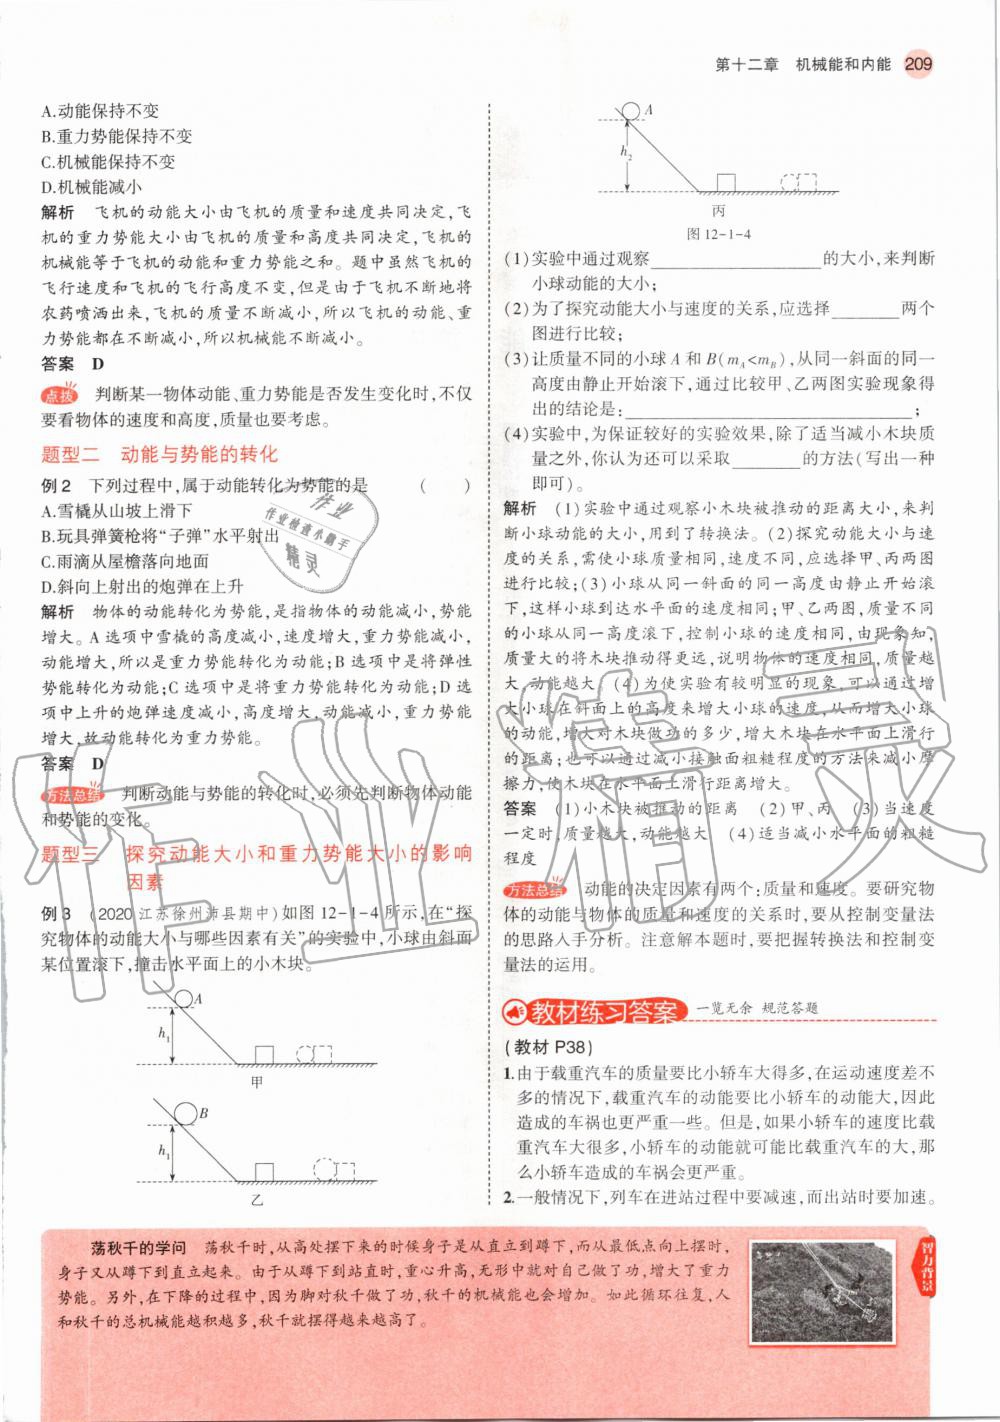 第十二章 机械能和内能 209
A.动能保持不变
B.重力势能保持不变
C.机械能保持不变
D.机械能减小
解析 飞机的动能大小由飞机的质量和速度共同决定,飞
机的重力势能大小由飞机的质量和高度共同决定,飞机的
机械能等于飞机的动能和重力势能之和。题中虽然飞机的
飞行速度和飞机的飞行高度不变,但是由于飞机不断地将
农药喷洒出来,飞机的质量不断减小,所以飞机的动能、重
力势能都在不断减小,所以机械能不断减小。
答案 D
点拨 判断某一物体动能、重力势能是否发生变化时,不仅
要看物体的速度和高度,质量也要考虑。
题型二 动能与势能的转化
例2 下列过程中,属于动能转化为势能的是 ( )
A.雪橇从山坡上滑下
B.玩具弹簧枪将“子弹”水平射出
C.雨滴从屋檐落向地面
D.斜向上射出的炮弹在上升
解析 物体的动能转化为势能,是指物体的动能减小,势能
增大。A选项中雪橇的高度减小,速度增大,重力势能减小,
动能增大,所以是重力势能转化为动能;B选项中是将弹性
势能转化为动能;C选项中是将重力势能转化为动能;D选
项中上升的炮弹速度减小,高度增大,动能减小,重力势能
增大,故动能转化为重力势能。
答案 D
方法总结 判断动能与势能的转化时,必须先判断物体动能
和势能的变化。
题型三 探究动能大小和重力势能大小的影响
因素
例3 (2020江苏徐州沛县期中)如图12-1-4所示,在“探
究物体的动能大小与哪些因素有关”的实验中,小球由斜面
某位置滚下,撞击水平面上的小木块。
A
h1
甲
B
h1
乙
A
h2
丙
图12-1-4
(1)实验中通过观察________________的大小,来判断
小球动能的大小;
(2)为了探究动能大小与速度的关系,应选择________两个
图进行比较;
(3)让质量不同的小球A和B(mA<mB),从同一斜面的同一
高度由静止开始滚下,通过比较甲、乙两图实验现象得
出的结论是:________________________________;
(4)实验中,为保证较好的实验效果,除了适当减小木块质
量之外,你认为还可以采取________的方法(写出一种
即可)。
解析 (1)实验中通过观察小木块被推动的距离大小,来判
断小球动能的大小,用到了转换法。(2)探究动能大小与速
度的关系,需使小球质量相同,速度不同,应选择甲、丙两图
进行比较;(3)小球从同一斜面的同一高度由静止开始滚
下,这样小球到达水平面的速度相同;甲、乙两图,质量不同
的小球从同一高度滚下,控制小球的速度相同,由现象知,
质量大的将木块推动得更远,说明物体的速度相同,质量越
大,动能越大。(4)为使实验有较明显的现象,可以通过增
大小球在斜面上的高度来增大小球的速度,从而增大小球
的动能,增大对木块做功的多少,增大木块在水平面上滑行
的距离;也可以通过减小接触面粗糙程度的方法来减小摩
擦力,使木块在水平面上滑行距离增大。
答案 (1)小木块被推动的距离 (2)甲、丙 (3)当速度
一定时,质量越大,动能越大 (4)适当减小水平面的粗糙
程度
方法总结 动能的决定因素有两个:质量和速度。要研究物
体的动能与物体的质量和速度的关系时,要从控制变量法
的思路入手分析。注意解本题时,要把握转换法和控制变
量法的运用。
教材练习答案 一览无余 规范答题
(教材P38)
1.由于载重汽车的质量要比小轿车大得多,在运动速度差不
多的情况下,载重汽车的动能要比小轿车的动能大,因此
造成的车祸也更严重一些。但是,如果小轿车的速度比载
重汽车大很多,小轿车的动能就可能比载重汽车的大,那
么小轿车造成的车祸会更严重。
2.一般情况下,列车在进站过程中要减速,而出站时要加速。
荡秋千的学问 荡秋千时,从高处摆下来的时候身子是从直立到蹲下,而从最低点向上摆时,
身子又从蹲下到直立起来。由于从蹲下到站直时,重心升高,无形中就对自己做了功,增大了重力
势能。另外,在下降的过程中,因为脚对秋千做了功,秋千的机械能也会增加。如此循环往复,人
和秋千的总机械能越积越多,秋千就摆得越来越高了。
智力背景
作业
作业检查小助手
精灵
作业精灵